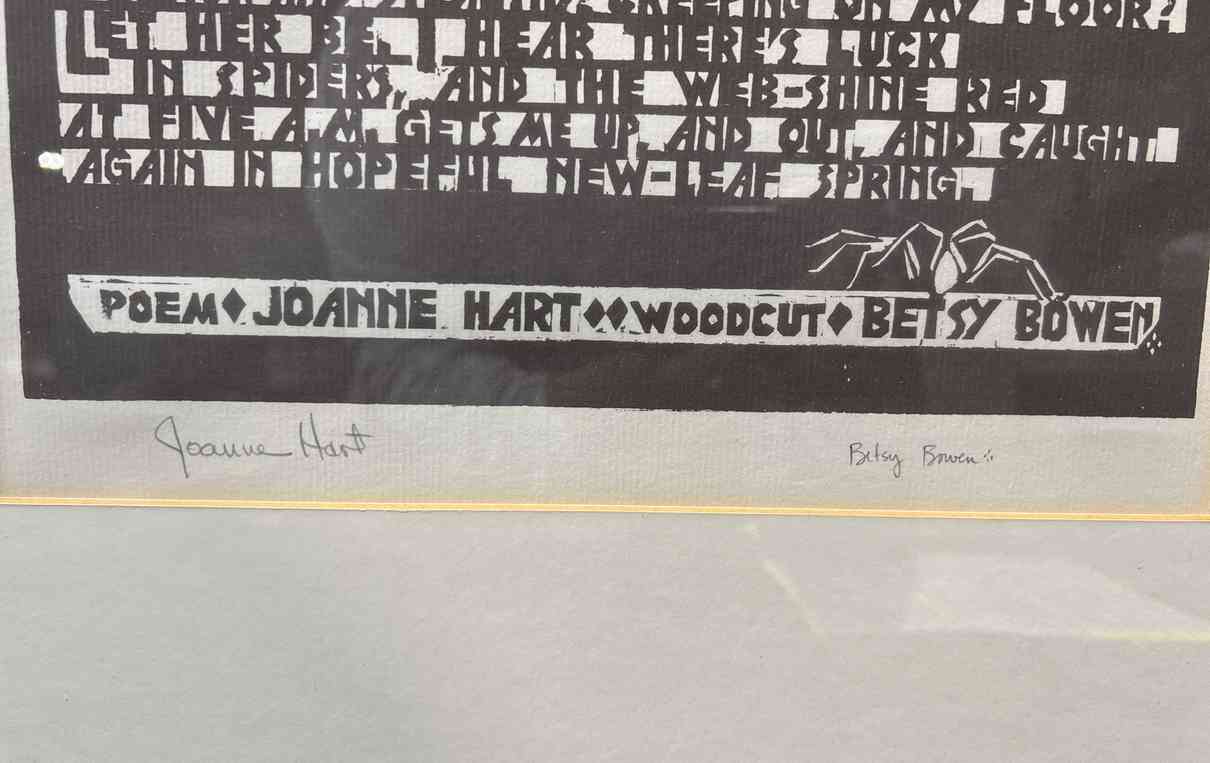 CREEPING ON MY FLOOR?
LET HER BE. I HEAR THERE'S LUCK
IN SPIDERS, AND THE WEB-SHINE RED
AT FIVE A.M. GETS ME UP, AND OUT, AND CAUGHT
AGAIN IN HOPEFUL NEW-LEAF SPRING.
POEM♦JOANNE HART♦♦WOODCUT♦BETSY BOWEN
Joanne Hart
Betsy Bowen